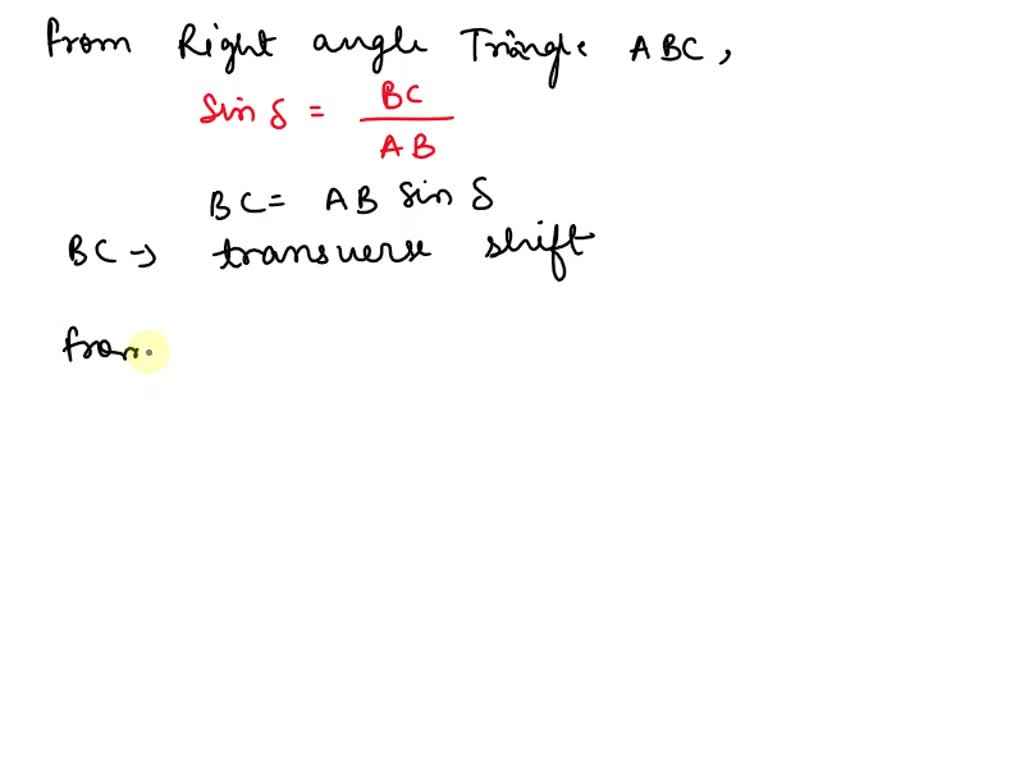 from Right angle Triangle ABC,
Sin δ = BC / AB
BC = AB Sin δ
BC → transverse shift
from